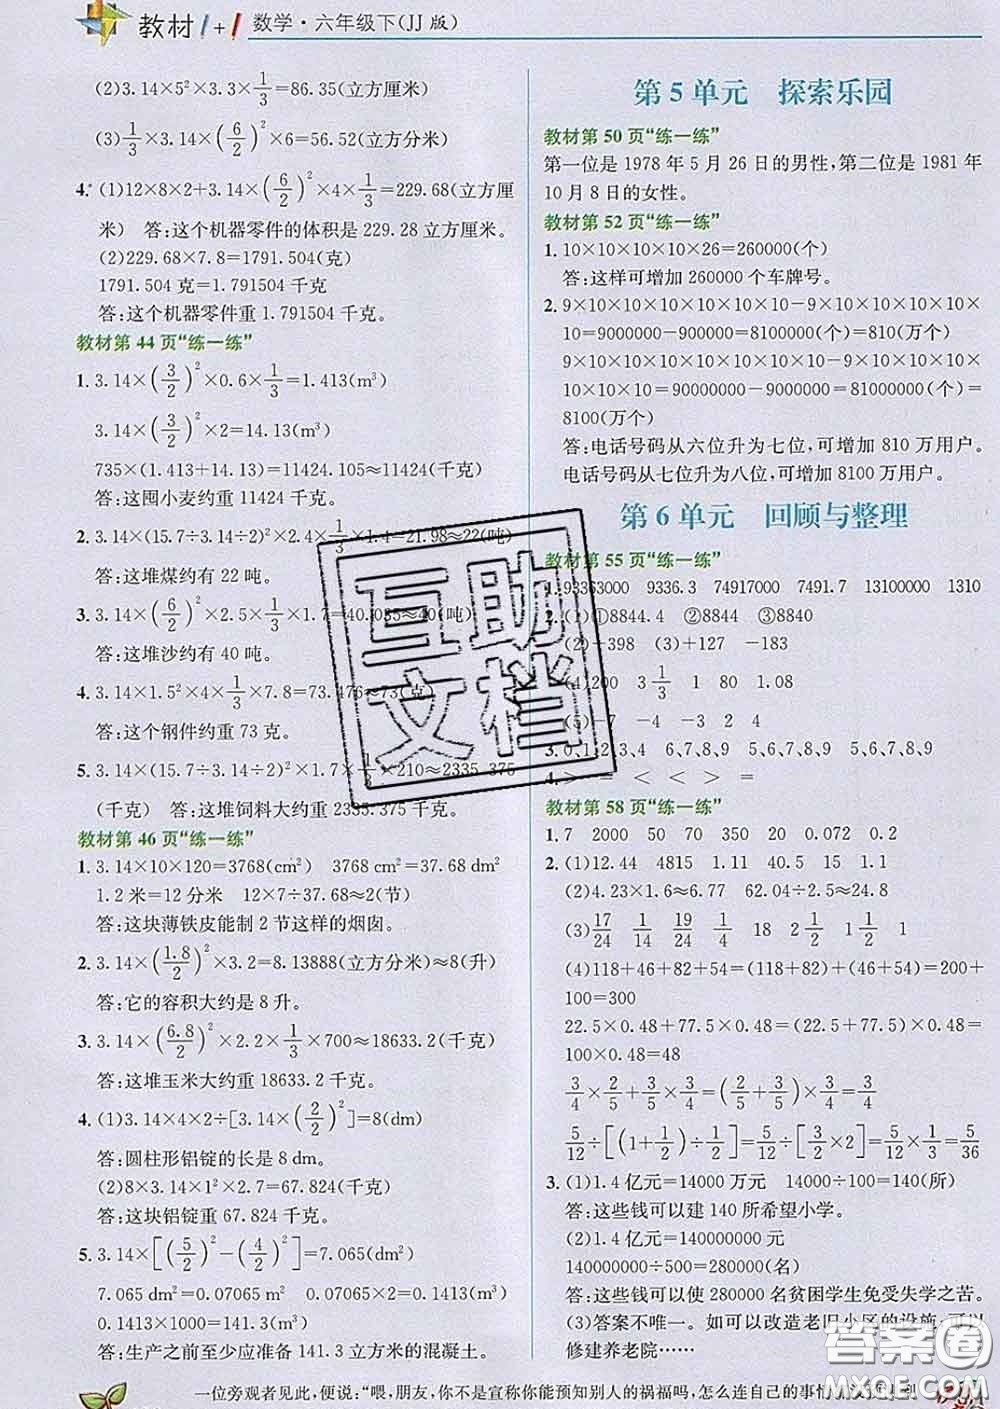 教材1+1 数学·六年级下(JJ版)
(2)3.14×5²×3.3×1/3=86.35(立方厘米)
(3)1/3×3.14×(6/2)²×6=56.52(立方分米)
4. (1)12×8×2+3.14×(6/2)²×4×1/3=229.68(立方厘
米) 答:这个机器零件的体积是 229.28 立方厘米。
(2)229.68×7.8=1791.504(克)
1791.504 克=1.791504 千克
答:这个机器零件重 1.791504 千克。
教材第 44 页“练一练”
1. 3.14×(3/2)²×0.6×1/3=1.413(m³)
3.14×(3/2)²×2=14.13(m³)
735×(1.413+14.13)=11424.105≈11424(千克)
答:这囤小麦约重 11424 千克。
2. 3.14×(15.7÷3.14÷2)²×2.4×1/3×1.4=21.98≈22(吨)
答:这堆煤约有 22 吨。
3. 3.14×(6/2)²×2.5×1/3×1.7=40.035≈40(吨)
答:这堆沙约有 40 吨。
4. 3.14×1.5²×4×1/3×7.8=73.476≈73(克)
答:这个钢件约重 73 克。
5. 3.14×(15.7÷3.14÷2)²×1.7×1/3×210≈2335.375
(千克) 答:这堆饲料大约重 2335.375 千克。
教材第 46 页“练一练”
1. 3.14×10×120=3768(cm²) 3768 cm²=37.68 dm²
1.2 米=12 分米 12×7÷37.68≈2(节)
答:这块薄铁皮能制 2 节这样的烟囱。
2. 3.14×(1.8/2)²×3.2=8.13888(立方分米)≈8(升)
答:它的容积大约是 8 升。
3. 3.14×(6.8/2)²×2.2×1/3×700≈18633.2(千克)
答:这堆玉米大约重 18633.2 千克。
4. (1)3.14×4×2÷[3.14×(2/2)²]=8(dm)
答:圆柱形铝锭的长是 8 dm。
(2)8×3.14×1²×2.7=67.824(千克)
答:这块铝锭重 67.824 千克。
5. 3.14×[(5/2)²-(4/2)²]=7.065(dm²)
7.065 dm²=0.07065 m² 0.07065×2=0.1413(m³)
0.1413×1000=141.3(m³)
答:生产之前至少应准备 141.3 立方米的混凝土。
第 5 单元 探索乐园
教材第 50 页“练一练”
第一位是 1978 年 5 月 26 日的男性,第二位是 1981 年
10 月 8 日的女性。
教材第 52 页“练一练”
1. 10×10×10×10×26=260000(个)
答:这样可增加 260000 个车牌号。
2. 9×10×10×10×10×10×10-9×10×10×10×10×
10=9000000-900000=8100000(个)=810(万个)
9×10×10×10×10×10×10×10-9×10×10×10×
10×10×10=90000000-9000000=81000000(个)=
8100(万个)
答:电话号码从六位升为七位,可增加 810 万用户。
电话号码从七位升为八位,可增加 8100 万用户。
第 6 单元 回顾与整理
教材第 55 页“练一练”
1. 93363000 9336.3 74917000 7491.7 13100000 1310
2. (1)①8844.4 ②8844 ③8840
(2)-398 (3)+127 -183
(4)200 3 1/3 1 80 1.08
(5)-7 -4 -3 2 4
3. 0,1,2,3,4 6,7,8,9 5,6,7,8,9
4. > = < < > =
教材第 58 页“练一练”
1. 7 2000 50 70 350 20 0.072 0.2
2. (1)12.44 4815 1.11 40.5 15 1.1
(2)4.23×1.6≈6.77 62.04÷2.5≈24.82
(3)17/24 1/14 19/24 1/4 90 18 2 1/2 1 1/2 1
(4)118+46+82+54=(118+82)+(46+54)=200+
100=300
22.5×0.48+77.5×0.48=(22.5+77.5)×0.48=
100×0.48=48
3/4×2/5+3/5×3/4=(2/5+3/5)×3/4=3/4
5/12÷[(1+1/2)÷1/2]=5/12÷[3/2×2]=5/12×1/3=5/36
3. (1)1.4亿元=14000万元 14000÷100=140(所)
答:这些钱可以建 140 所希望小学。
(2)1.4亿元=140000000元
140000000÷500=280000(名)
答:这些钱可以使 280000 名贫困学生免受失学之苦。
(3)答案不唯一。如可以改造老旧小区的设施,可以
修建养老院……
互助文档
答案圈
一位旁观者见此,便说:“喂,朋友,你不是宣称你能预知别人的祸福吗,怎么连自己的事情